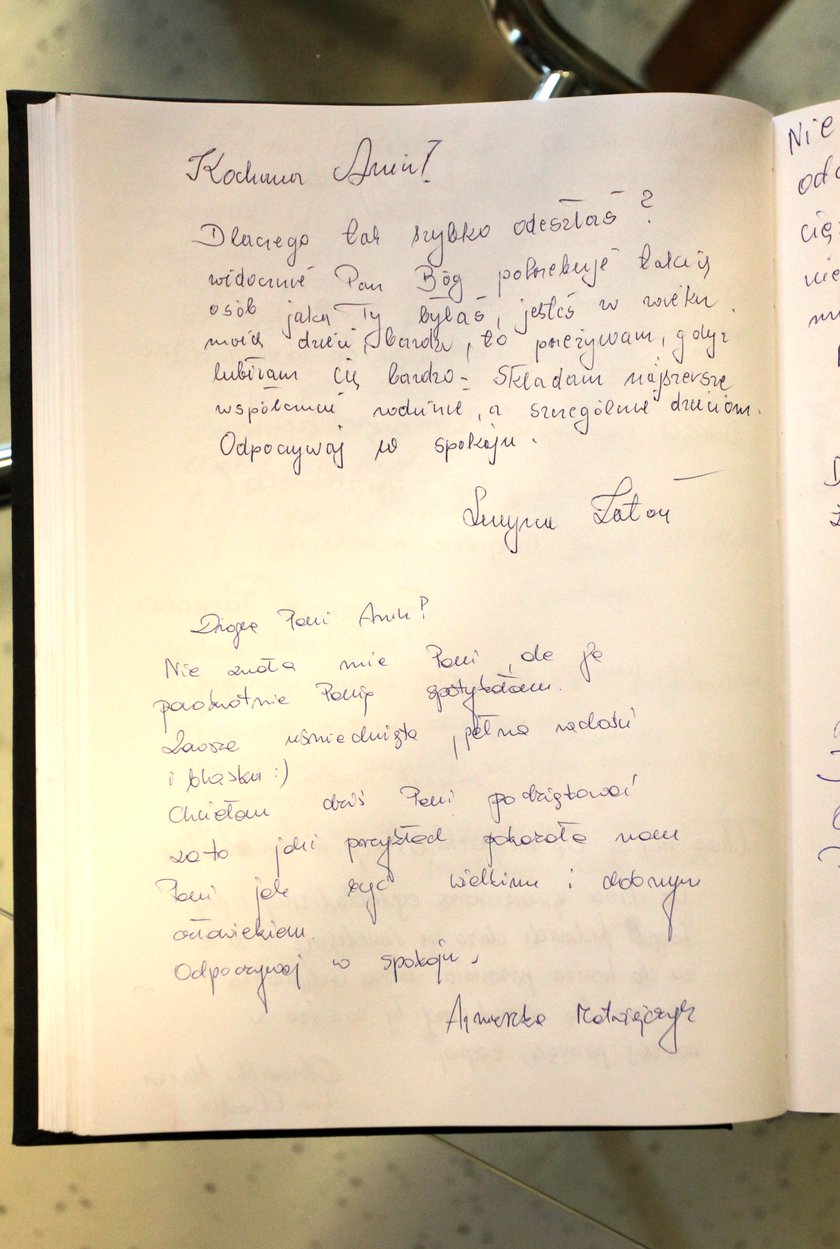 Kochana Aniu!
Dlaczego tak szybko odeszłaś?
widocznie Pan Bóg potrzebuje takich
osób jaką Ty byłaś, jesteś w wieku
moich dzieci, bardzo to przeżywam, gdyż
lubiłam Cię bardzo - Składam najszersze
współczucie rodzinie, a szczególnie dzieciom.
Odpoczywaj w spokoju.
Lucyna
Droga Pani Aniu!
Nie znała mnie Pani, ale ja
parokrotnie Panią spotykałam.
Zawsze uśmiechnięta, pełna radości
i blasku :)
Chciałam dziś Pani podziękować
za to jaki przykład pokazała nam
Pani jak być wielkim i dobrym
człowiekiem.
Odpoczywaj w spokoju.
Agnieszka Matwiejczyk
Nie